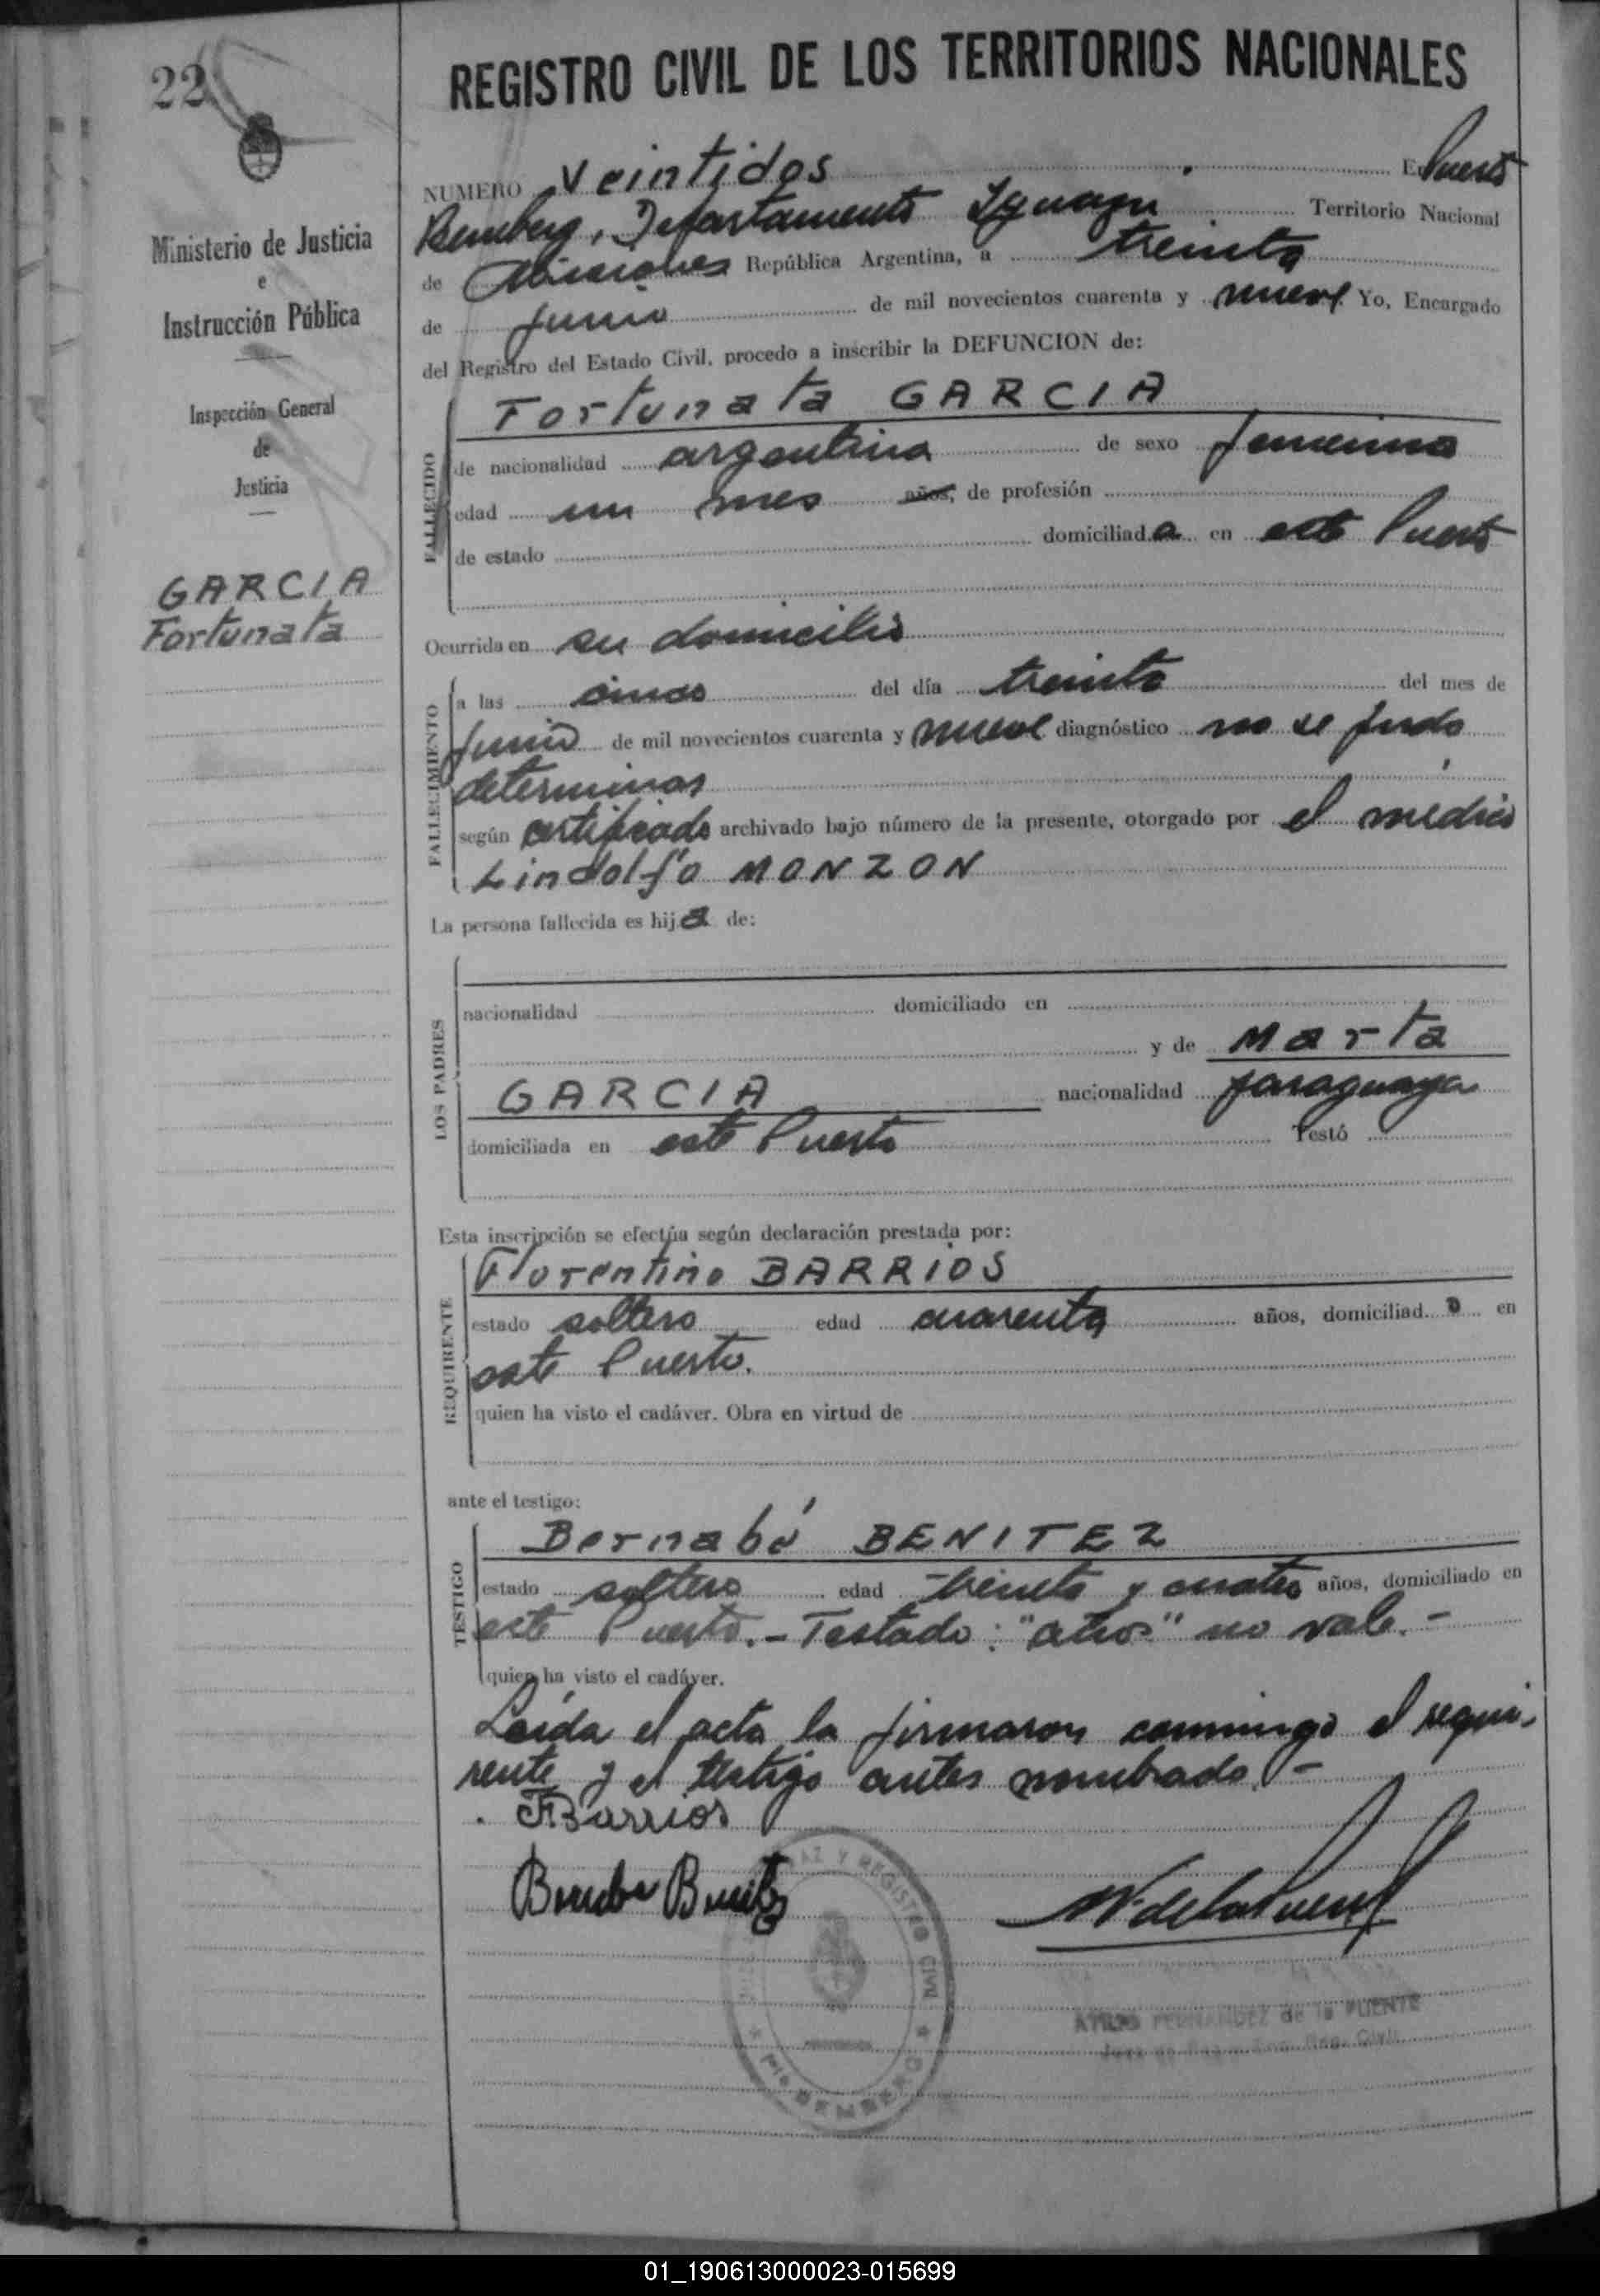 22
REGISTRO CIVIL DE LOS TERRITORIOS NACIONALES
Ministerio de Justicia
e
Instrucción Pública
Inspección General
de
Justicia
GARCIA
Fortunata
NUMERO Veintidos En Puerto
Bemberg, Departamento Iguazu Territorio Nacional
de Misiones República Argentina, a treinta
de junio de mil novecientos cuarenta y nueve Yo, Encargado
del Registro del Estado Civil, procedo a inscribir la DEFUNCION de:
FALLECIDO
Fortunata GARCIA
de nacionalidad argentina de sexo femenino
edad un mes años, de profesión
de estado domiciliada en este Puerto
Ocurrida en su domicilio
FALLECIMIENTO
a las cinco del día treinta del mes de
junio de mil novecientos cuarenta y nueve diagnóstico no se pudo
determinar
según certificado archivado bajo número de la presente, otorgado por el médico
Lindolfo MONZON
La persona fallecida es hija de:
LOS PADRES
nacionalidad domiciliado en
y de Marta
GARCIA nacionalidad paraguaya
domiciliada en este Puerto Testó
Esta inscripción se efectúa según declaración prestada por:
REQUIRENTE
Florentino BARRIOS
estado soltero edad cuarenta años, domiciliado en
este Puerto.
quien ha visto el cadáver. Obra en virtud de
ante el testigo:
TESTIGO
Bernabé BENITEZ
estado soltero edad treinta y cuatro años, domiciliado en
este Puerto.- Testado: "años" no vale.-
quien ha visto el cadáver.
Leída el acta la firmaron conmigo el requi-
rente y el testigo antes nombrado.-
FBarrios
Bernabe Benitez
PAZ Y REGISTRO CIVIL
Pto BEMBERG
ATILIO FERNANDEZ de la PUENTE
Juez de Paz Enc. Reg. Civil
01_190613000023-015699